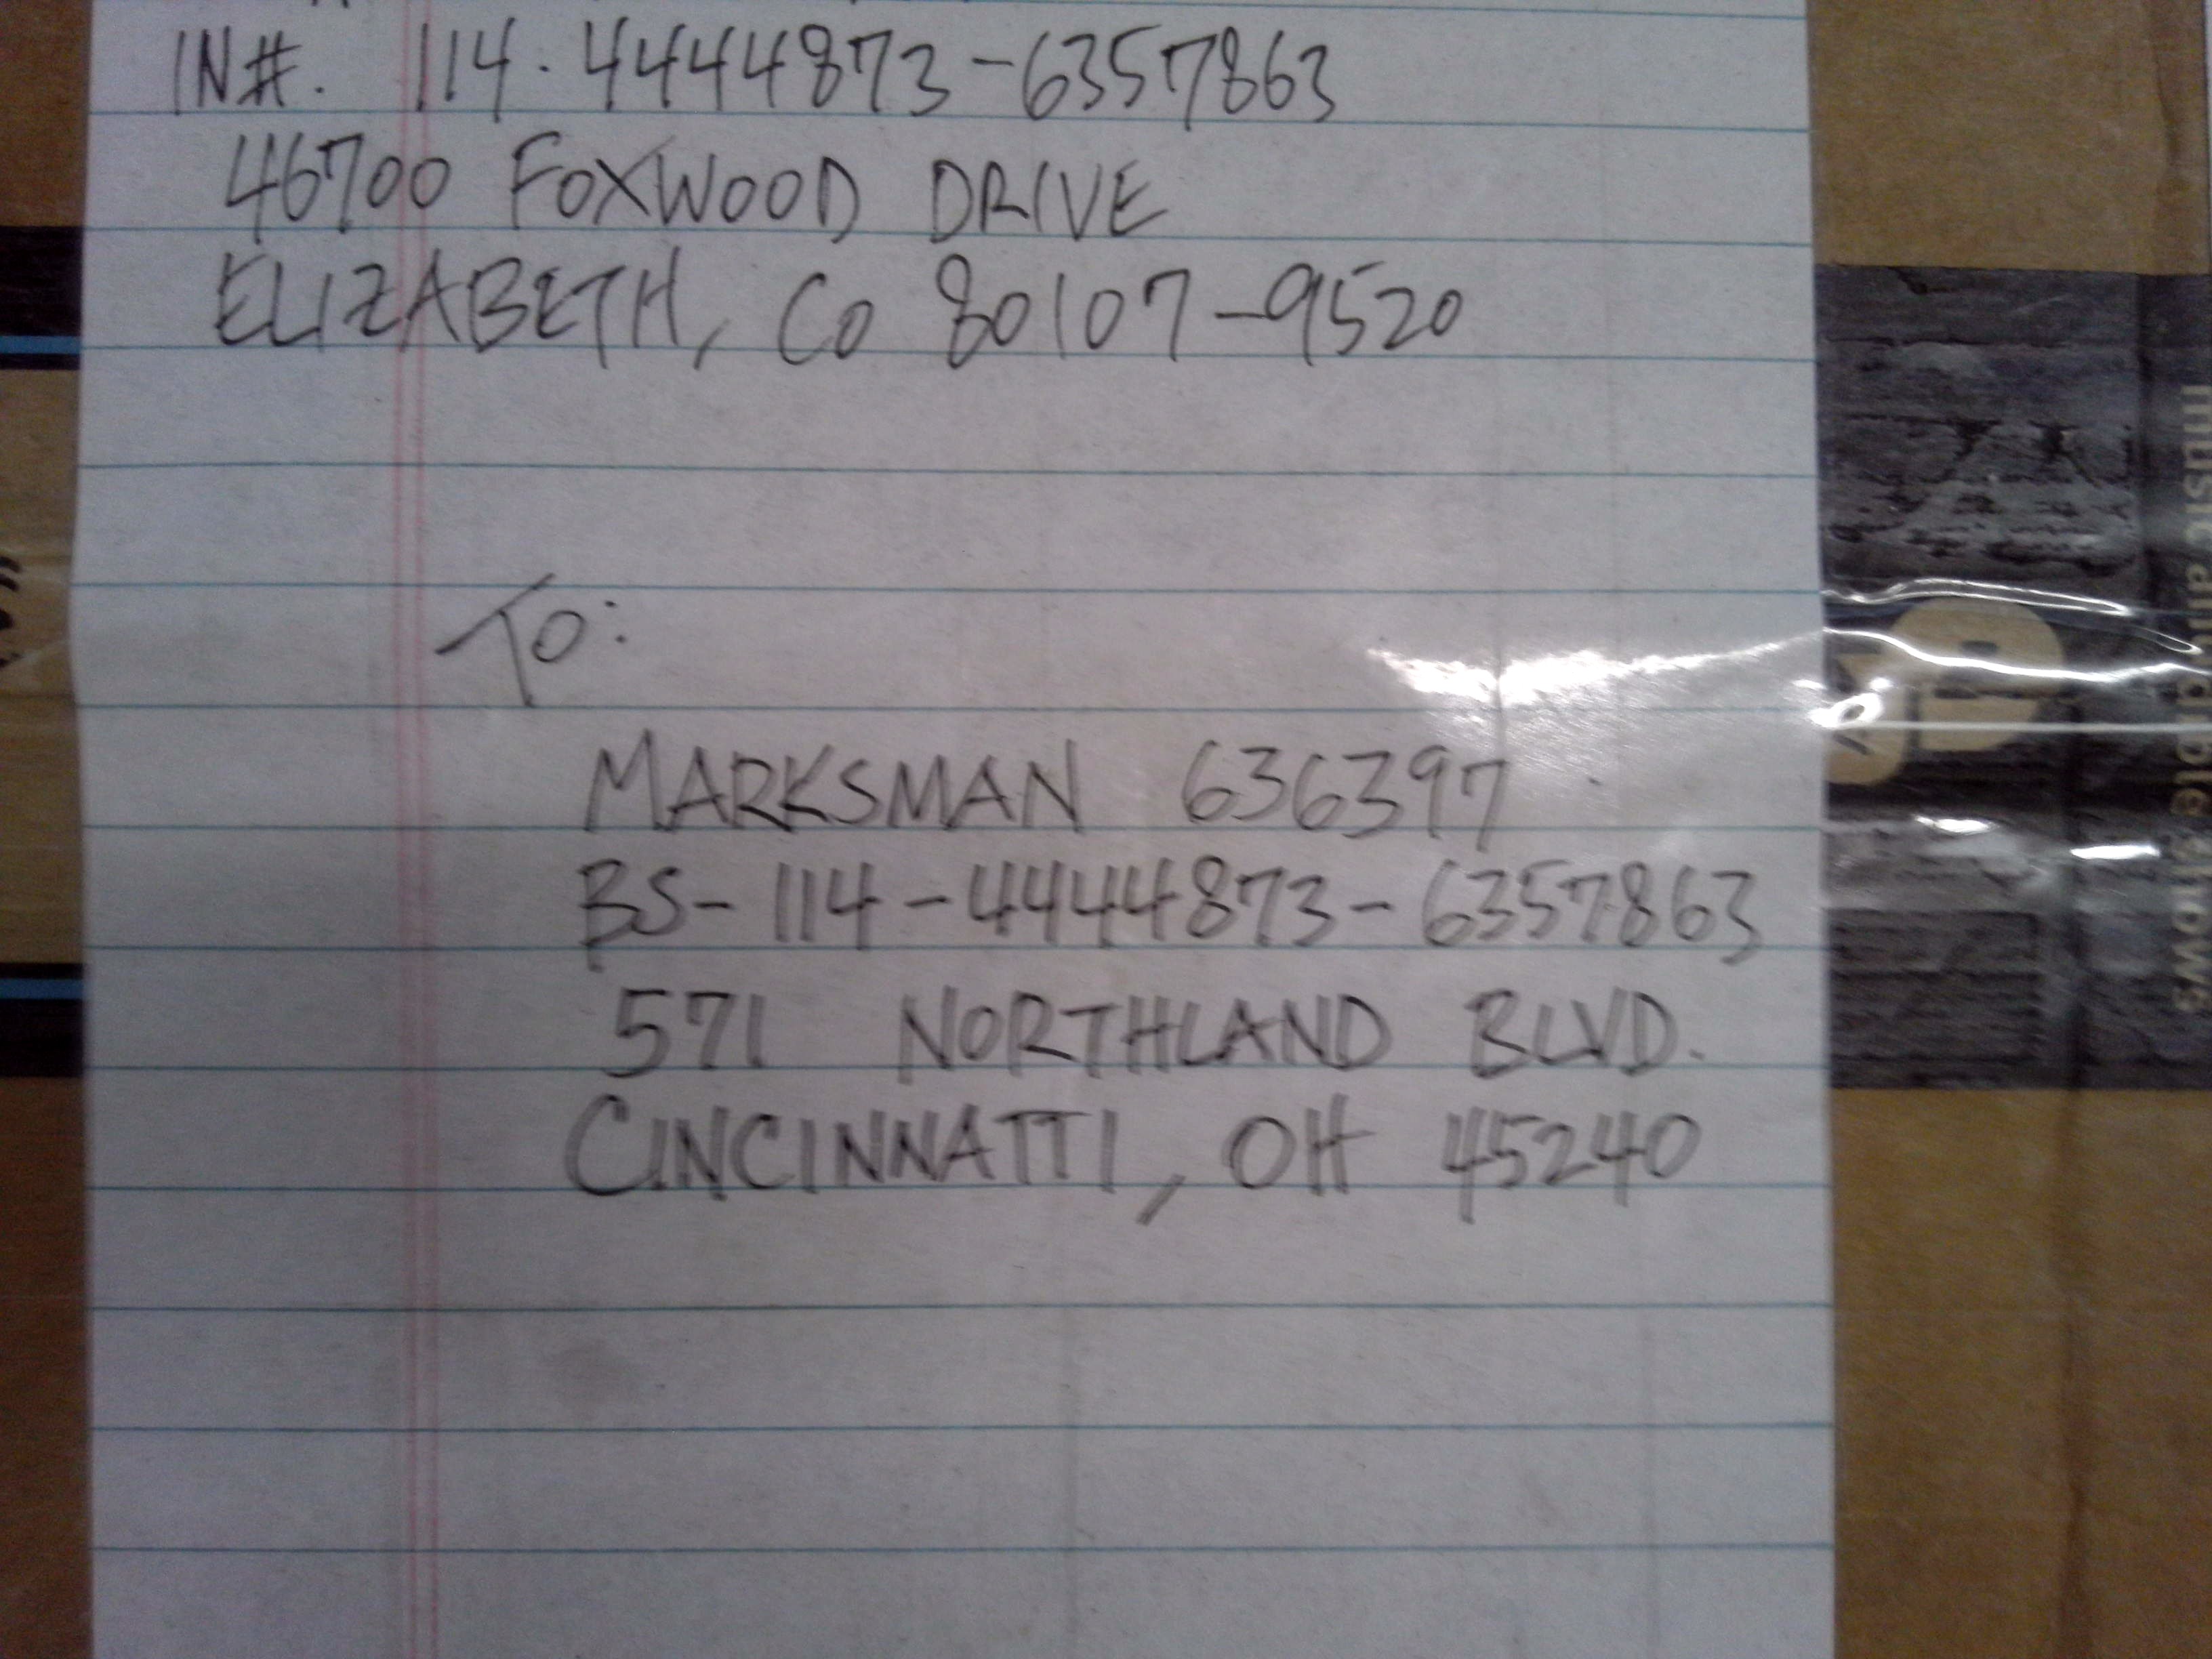 IN#. 114-4444873-6357863
46700 FOXWOOD DRIVE
ELIZABETH, CO 80107-9520
TO:
MARKSMAN 636397
BS-114-4444873-6357863
571 NORTHLAND BLVD.
CINCINNATTI, OH 45240
shows